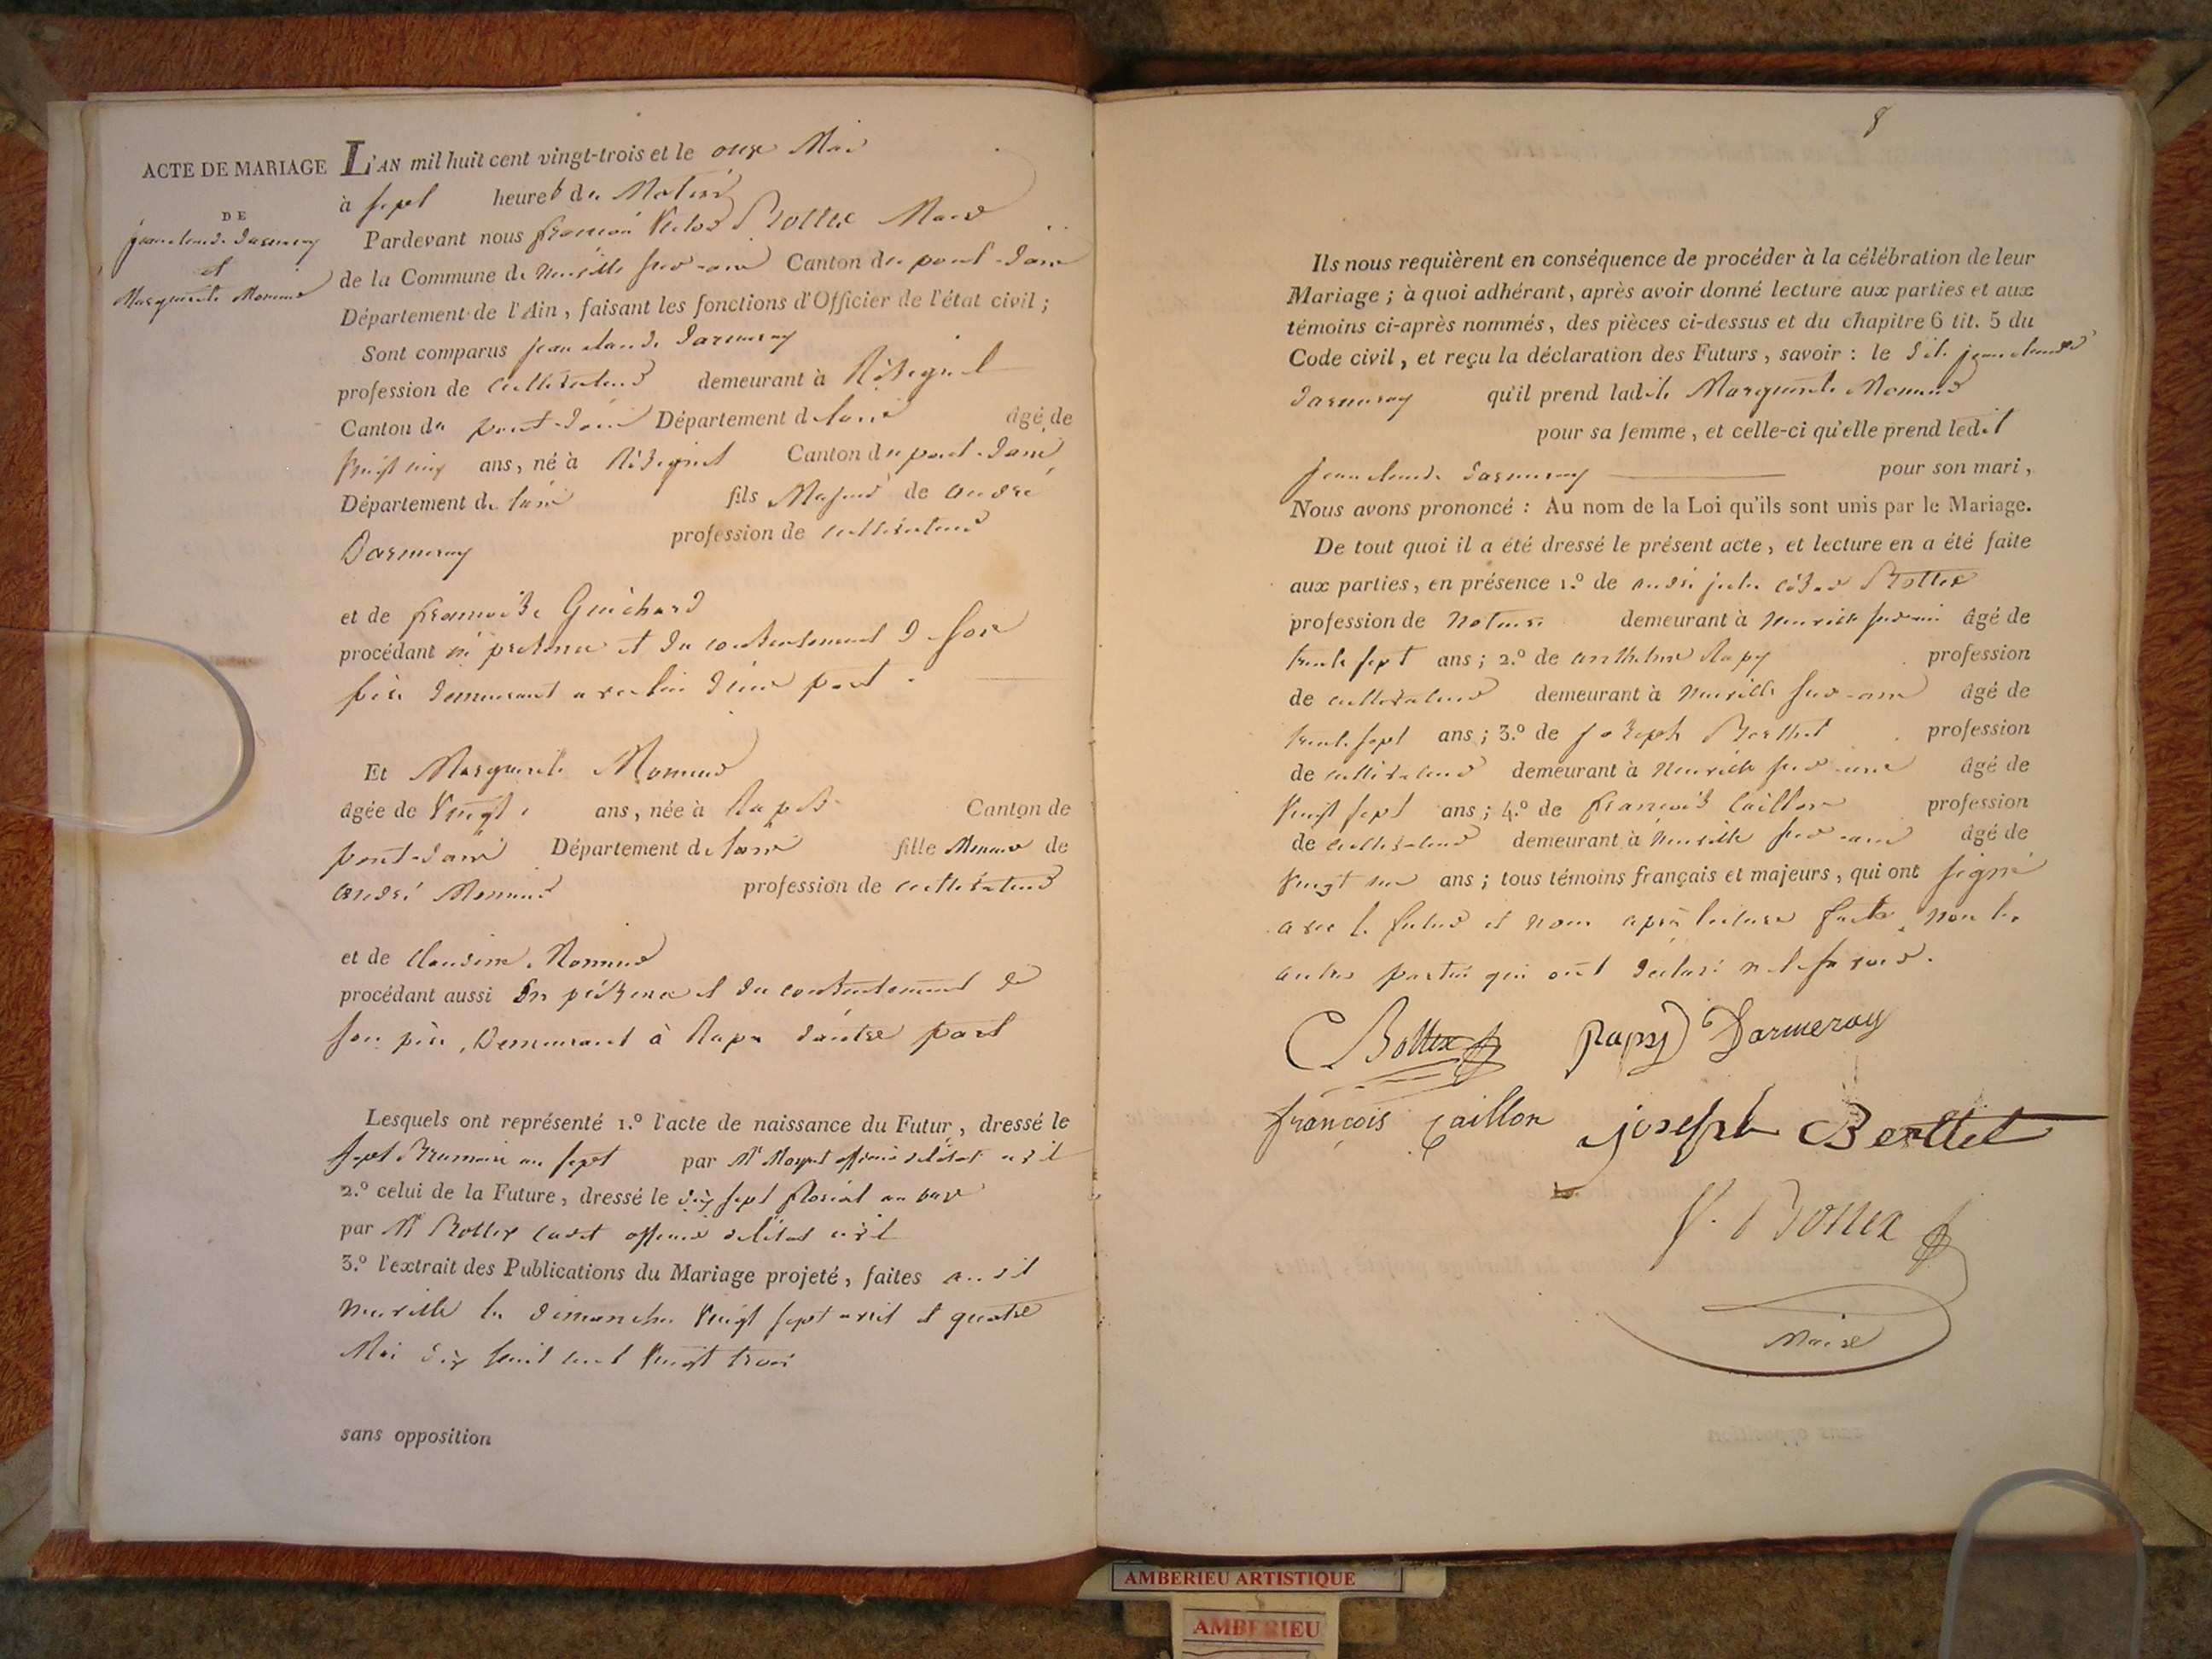 ACTE DE MARIAGE
DE
jean claude darmeray
et
Marguerite Monnet
L'AN mil huit cent vingt-trois et le onze Mai
à sept heures du Matin
Pardevant nous françois Victor Bottex Maire
de la Commune de neuville sur ain Canton du pont-dain
Département de l'Ain, faisant les fonctions d'Officier de l'état civil ;
Sont comparus jean claude darmeray
profession de cultivateur demeurant à Résignel
Canton du pont-dain Département de lain âgé de
Vingt cinq ans, né à Résignel Canton du pont-dain
Département de lain fils Majeur de andré
Darmeray profession de cultivateur
et de françoise Guichard
procédant en présence et du consentement de son
père demeurant avec lui d'une part
Et Marguerite
âgée de Vingt ans, née à Canton de
pont-dain Département de lain fille Mineure de
andré profession de cultivateur
et de Claudine
procédant aussi En présence et du consentement de
son père, Demeurant à d'autre part
Lesquels ont représenté 1.º l'acte de naissance du Futur, dressé le
sept Brumaire an sept par Mr officier de létat civil
2.º celui de la Future, dressé le dix sept floréal an onze
par Mr Bottex cadet officier de létat civil
3.º l'extrait des Publications du Mariage projeté, faites audit
neuville les dimanches Vingt sept avril et quatre
Mai dix huit cent Vingt trois
sans opposition
8
Ils nous requièrent en conséquence de procéder à la célébration de leur
Mariage ; à quoi adhérant, après avoir donné lecture aux parties et aux
témoins ci-après nommés, des pièces ci-dessus et du chapitre 6 tit. 5 du
Code civil, et reçu la déclaration des Futurs, savoir : le dit jean claude
darmeray qu'il prend ladite Marguerite
pour sa femme, et celle-ci qu'elle prend ledit
jean claude darmeray pour son mari,
Nous avons prononcé : Au nom de la Loi qu'ils sont unis par le Mariage.
De tout quoi il a été dressé le présent acte, et lecture en a été faite
aux parties, en présence 1.º de andré jules césar Bottex
profession de Notaire demeurant à neuville sur ain âgé de
trente sept ans ; 2.º de anthelme Rapy profession
de cultivateur demeurant à neuville sur-ain âgé de
trente sept ans ; 3.º de joseph Berthet profession
de cultivateur demeurant à Neuville sur-ain âgé de
Vingt sept ans ; 4.º de françois Caillon profession
de cultivateur demeurant à neuville sur-ain âgé de
Vingt ans ; tous témoins français et majeurs, qui ont signé
avec le futur et nous après lecture faite, non les
autres parties qui ont déclaré ne le savoir.
C Bottex Rapy Darmeray
françois caillon joseph Berthet
V. Bottex
Maire
sans opposition
AMBERIEU ARTISTIQUE
AMBERIEU